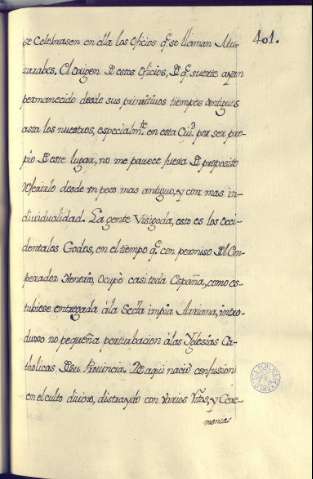 401.
se celebrasen en ella los Oficios q.e se llaman Mu-
zarabes. El origen D estos Oficios, D q.e suerte ayan
permanecido desde sus primitivos tiempos antiguos
asta los nuestros, especialm.te en esta Ciu.d por ser pro-
pio D este lugar, no me parece fuera D proposito
referirlo desde un poco mas antiguo, y con mas in-
dividualidad. La gente Visigoda, esto es los Occi-
dentales Godos, en el tiempo q.e con permiso D el Em-
perador Honorio, ocupò casi toda España, como es-
tubiese entregada à la Secta impia Arriana, intro-
duxo no pequeña perturbacion à las Yglesias Ca-
tholicas D su Provincia. D aqui naciò confusion
en el culto divino, distraydo con varios Ritos, y Cere-
monias